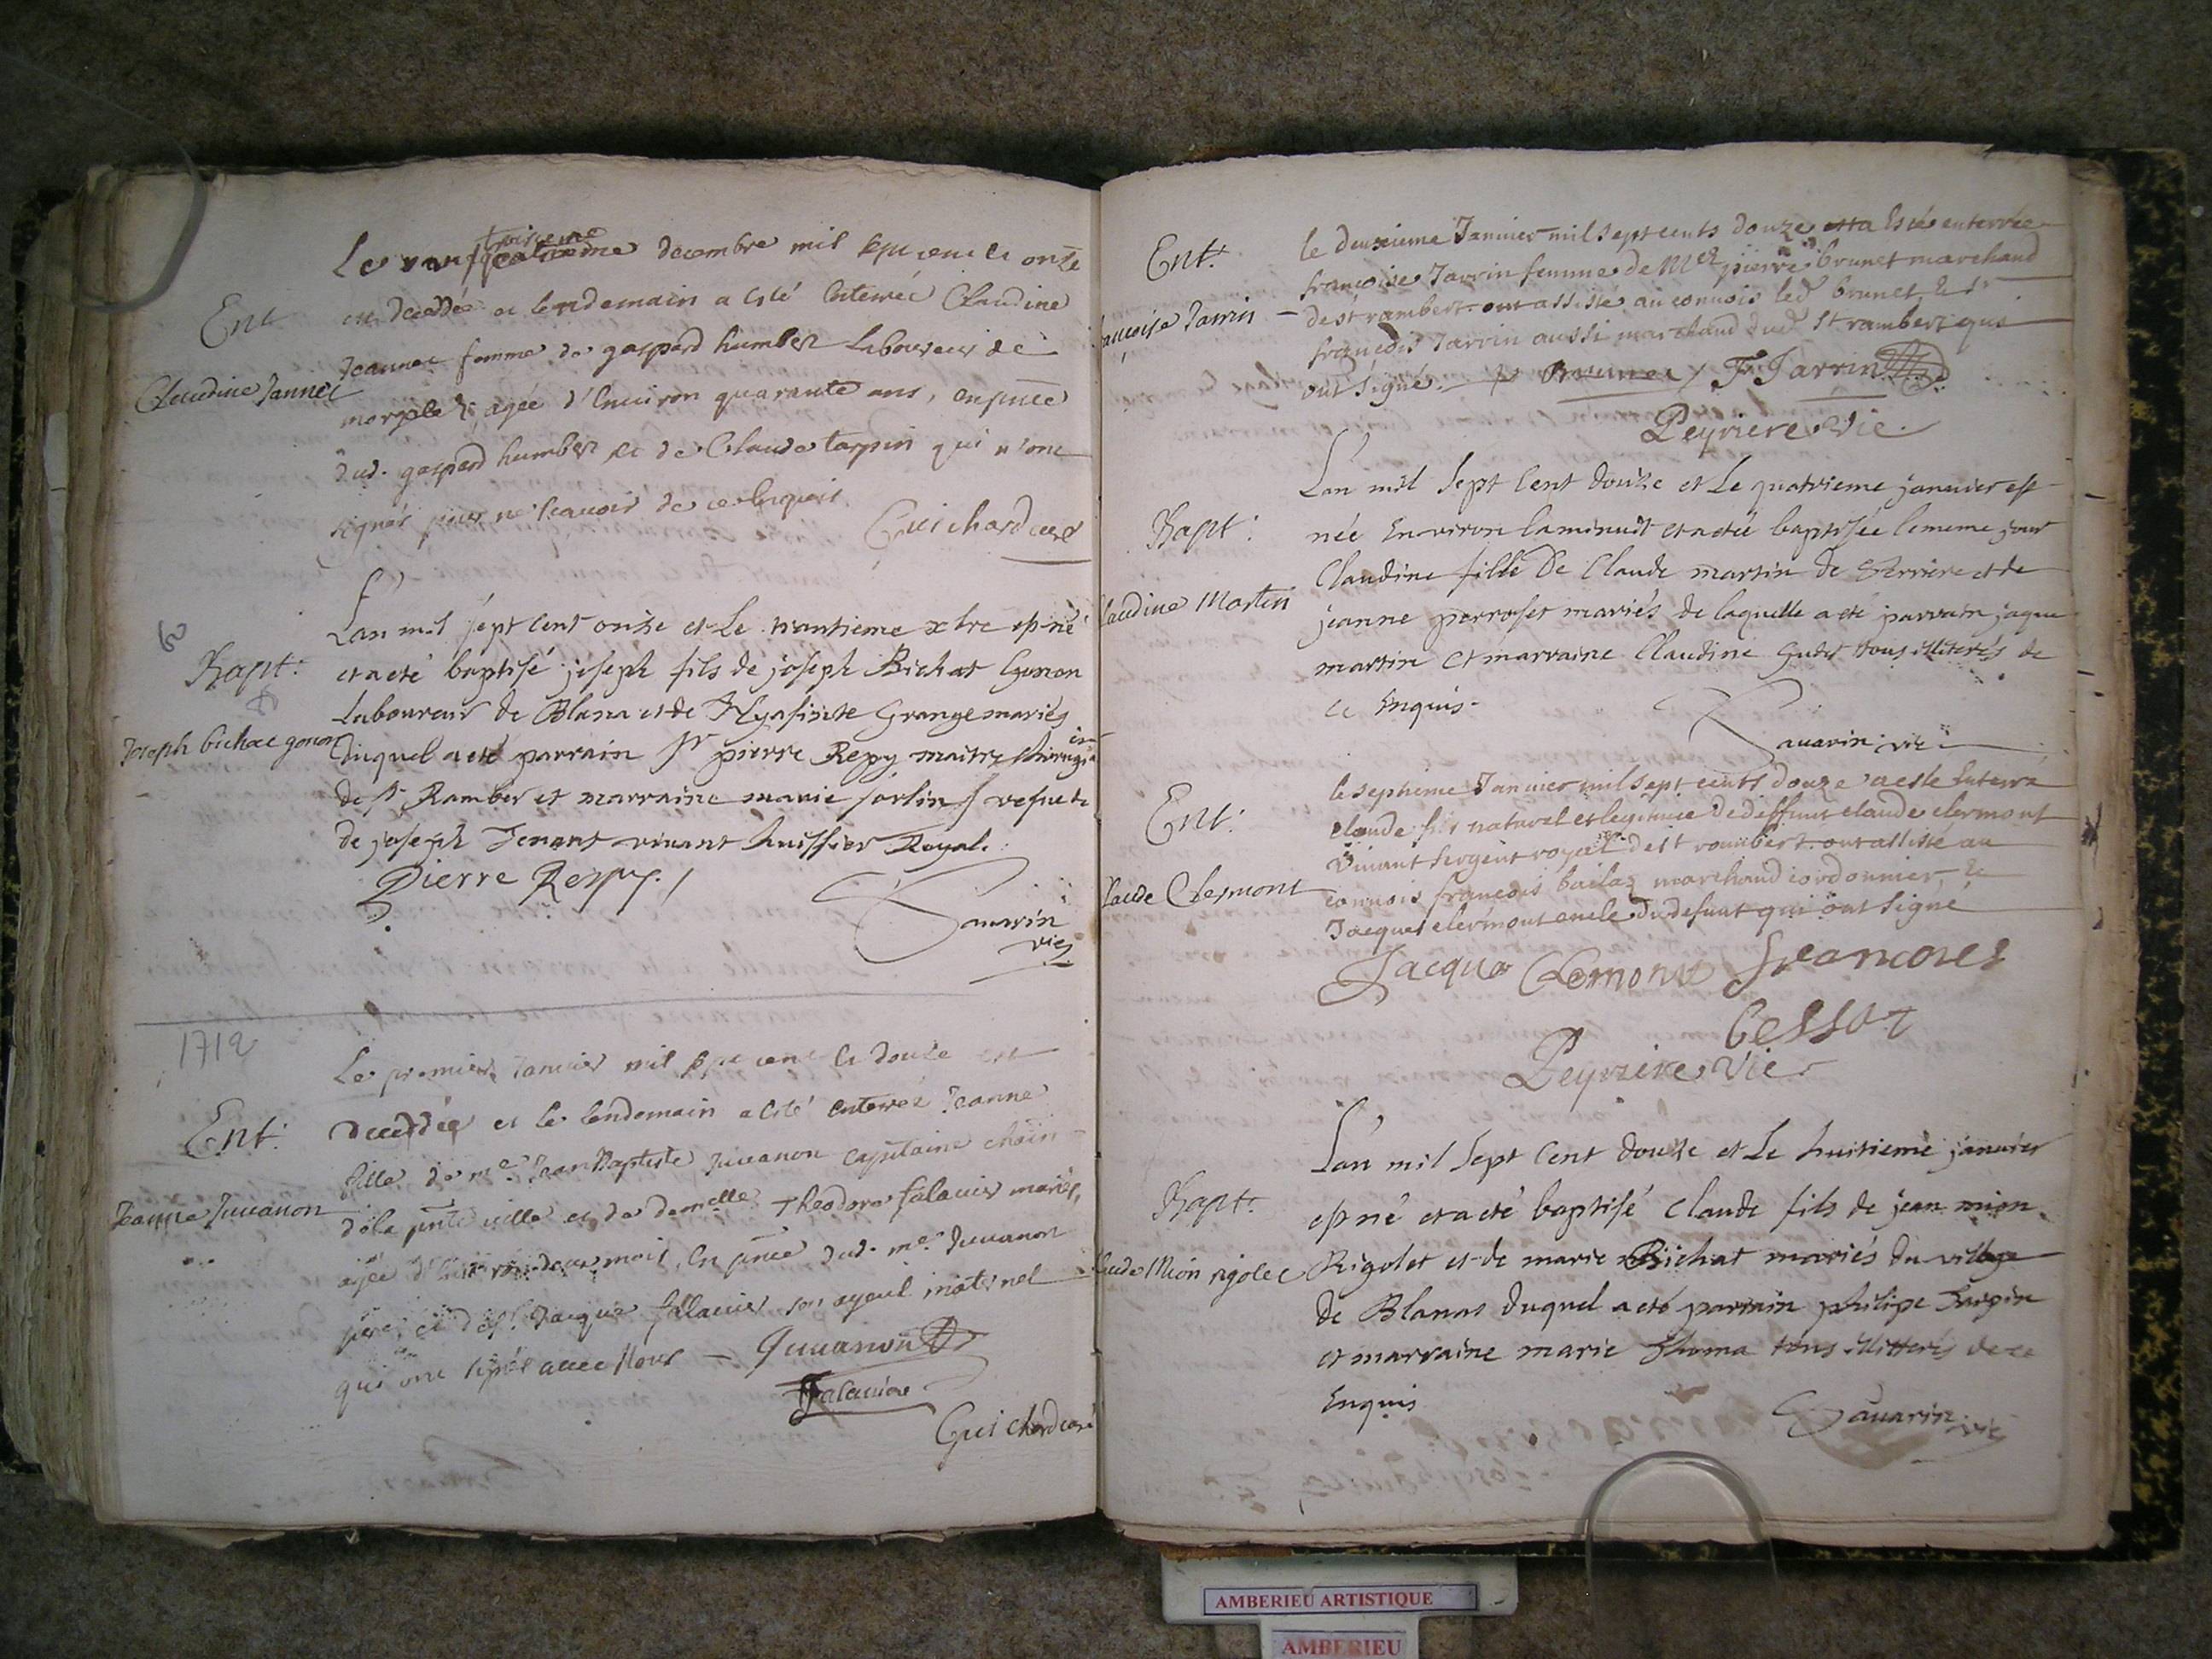 Ent
Claudine Jannet
Le vingt troisieme decembre mil sept cent et onze
est decedée et lendemain a esté enterrée Claudine
Jeannet femme de gaspard humbert laboureur de
agée d'environ quarante ans, en pnce
dud. gaspard humbert et de Claude tarpin qui n'ont
signés pour ne scavoir de ce enquis
Guichard curé
Bapt:
Joseph bichat gonon
L'an mil sept cent onze et Le trantieme xbre est né
et a eté baptisé joseph fils de joseph Bichat Gonon
Laboureur de Blana et de Hyasinte Grange mariés
Duquel a eté parrain Sr pierre Repy maitre chirurgien
de St Ramber et marraine marie sorlin vefve
de joseph Tenant vivant huissier Royal.
Pierre Repy
Savarin
vic
1712
Ent:
Jeanne Juvanon
Le premier Janvier mil sept cent et douze est
decedée et le lendemain a esté enterrée Jeanne
fille de me. Jean Baptiste Juvanon capitaine
de la pnte ville et de demelle Theodore falavier mariés,
agée d'environ deux mois, en pnce dud. me. Juvanon
pere, et de Sr. Jacque fallavier son ayeul maternel
qui ont signés avec Nous — Juvanon
Falavier
Guichard curé
Ent:
francoise Jarrin
le deuxieme Janvier mil sept cents douze a esté enterrée
francoise Jarrin femme de Me pierre brunet marchand
de st rambert. ont assisté au convois led brunet & Sr
françois Jarrin aussi marchand dud st rambert qui
ont signé. p Brunet / F Jarrin
Peyriere Vic
Bapt:
Claudine Martin
L'an mil Sept Cent douze et Le quatrieme janvier est
née Environ la minuit et a eté baptisée le meme jour
Claudine fille De Claude martin de Serriere et de
jeanne perroset mariés de laquelle a eté parrain jaque
martin et marraine Claudine tous illiterés de
ce Enquis.
Savarin vic
Ent:
Claude Clermont
le septieme Janvier mil sept cents douze a esté Enterré
claude fils naturel et legitime de deffunt claude clermont
vivant sergent royal de st rambert. ont assisté au
convois françois marchand cordonnier &
Jacques clermont oncle du defunt qui ont signé
Jacque Clermont francoies
bessot
Peyriere Vic
Bapt:
Claude Mion rigolet
L'an mil Sept Cent douze et Le huitieme janvier
est né et a eté baptisé Claude fils de jean mion
Rigolet et de marie Bichat mariés du village
de Blanas duquel a eté parrain philipe Tarpin
et marraine marie Thoma tous illitterés de ce
Enquis
Savarin vic
AMBERIEU ARTISTIQUE
AMBERIEU